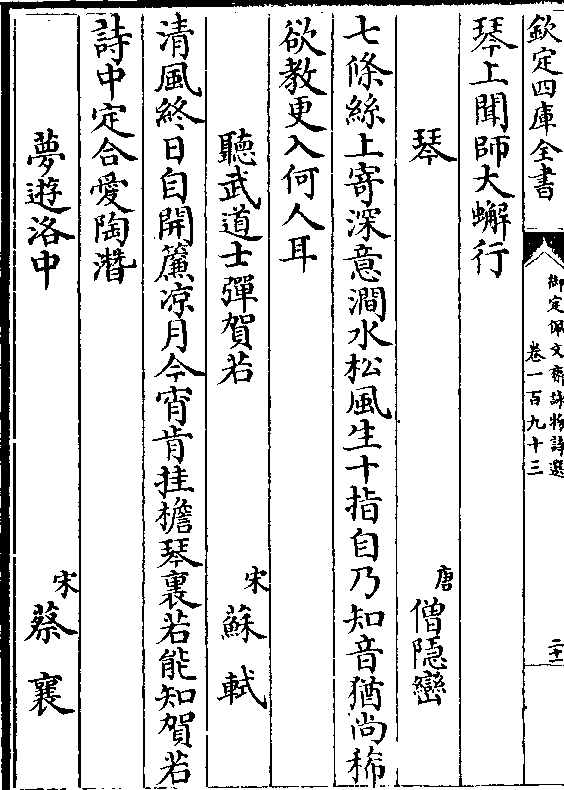 欽定四庫全書
御定佩文齋詠物詩選
卷一百九十三
二十一
琴上聞師大蠏行
琴
唐 僧隱巒
七條絲上寄深意澗水松風生十指自乃知音猶尚稀
欲教更入何人耳
聽武道士彈賀若
宋 蘇軾
清風終日自開簾凉月今宵肯挂檐琴裏若能知賀若
詩中定合愛陶潛
夢遊洛中
宋 蔡襄